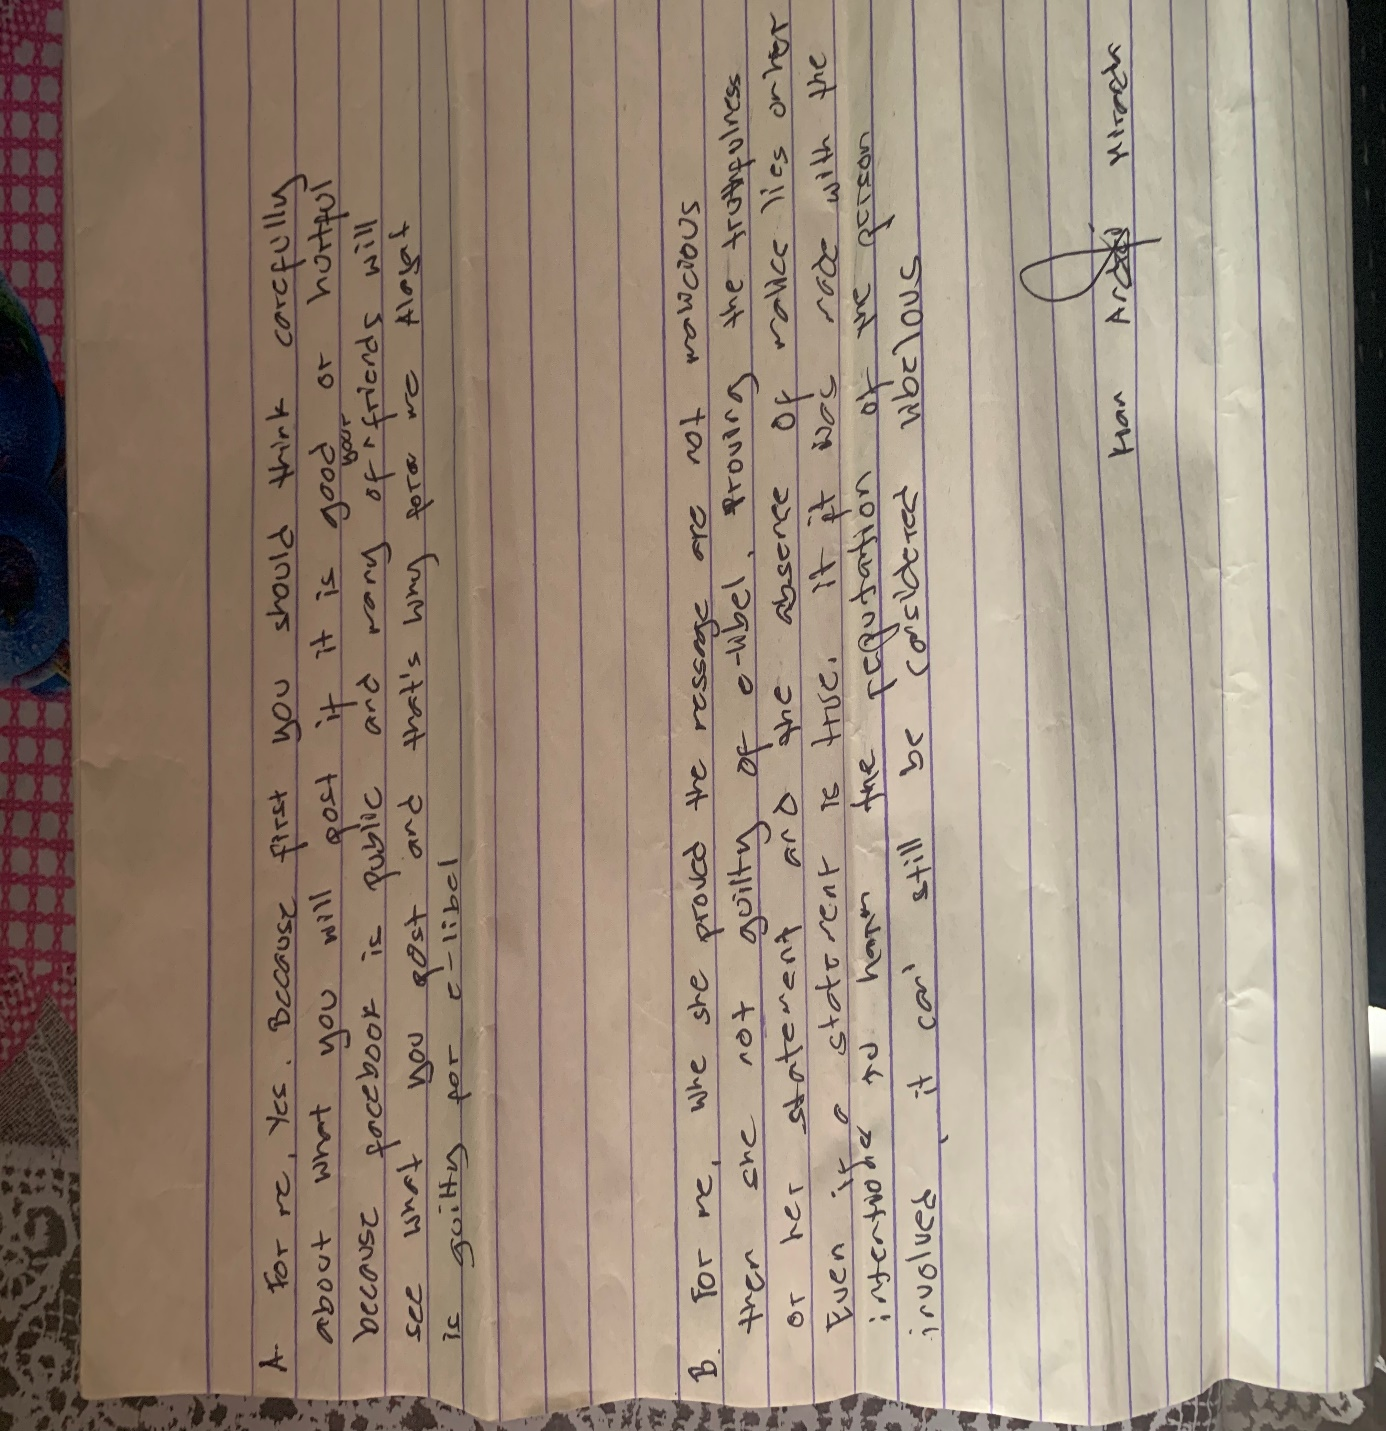 A. For me, Yes. Because first you should think carefully
about what you will post if it is good or hurtful
because facebook is public and many of your friends will
see what you post and that's why for me
is guilty for e-libel
B. For me, whe she proved the message are not malicious
then she not guilty of e-libel, proving the truthfulness
or her statement and the absence of malice lies on her
Even if a statement is true, if it was made with the
to harm the reputation of the person
involved, it can still be considered libelous